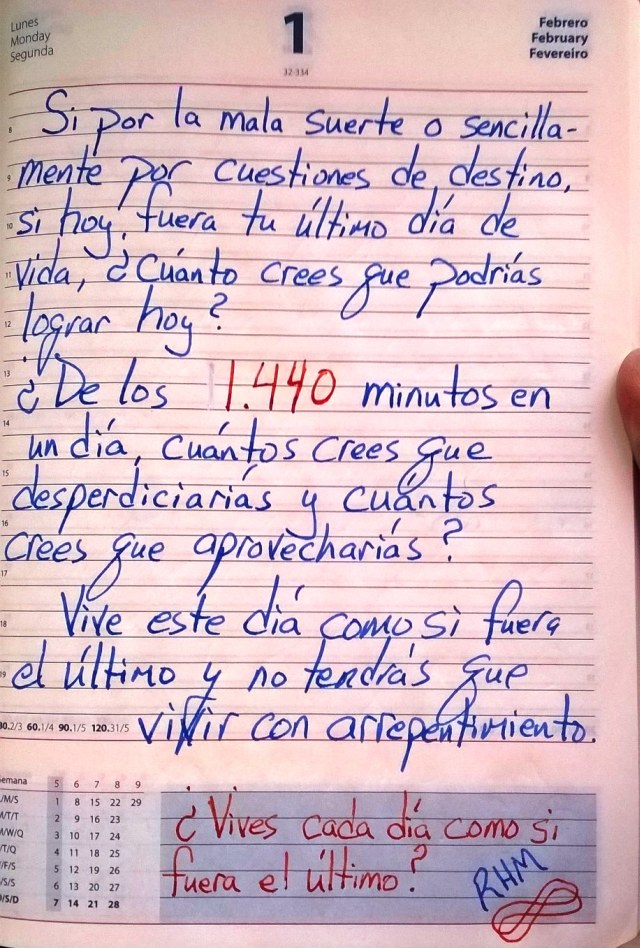 Lunes
Monday
Segunda
1
32-334
Febrero
February
Fevereiro
8
Si por la mala suerte o sencilla-
9
mente por cuestiones de destino,
10
si hoy fuera tu último día de
11
vida, ¿Cuánto crees que podrías
12
lograr hoy?
13
¿De los 1.440 minutos en
14
un día, cuántos crees que
15
desperdiciarías y cuántos
16
crees que aprovecharías?
17
18
Vive este día como si fuera
19
el último y no tendrás que
30.2/3 60.1/4 90.1/5 120.31/5
vivir con arrepentimiento.
emana 5 6 7 8 9
/M/S 1 8 15 22 29
M/T/T 2 9 16 23
M/W/Q 3 10 17 24
/T/Q 4 11 18 25
/F/S 5 12 19 26
/S/S 6 13 20 27
/S/D 7 14 21 28
¿Vives cada día como si
fuera el último?
RHM